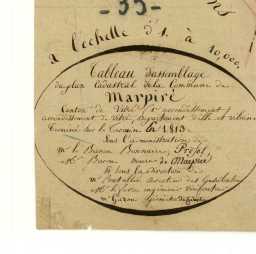 - 35 -
à l'échelle d'1. à 10,000.
Tableau d'assemblage
du plan Cadastral de la Commune de
Marpiré
Canton de Vitré, 1er arrondissement,
arrondissement de Vitré, département d'Ille et vilaine
Terminé sur le terrain le 1813.
Sous l'administration de
Mr le Baron Bonnaire, Préfet,
Mr Baron maire de Marpiré
Et sous la direction de
Mr directeur des Contributions
Mr le ingénieur vérificateur
Mr Géomètre